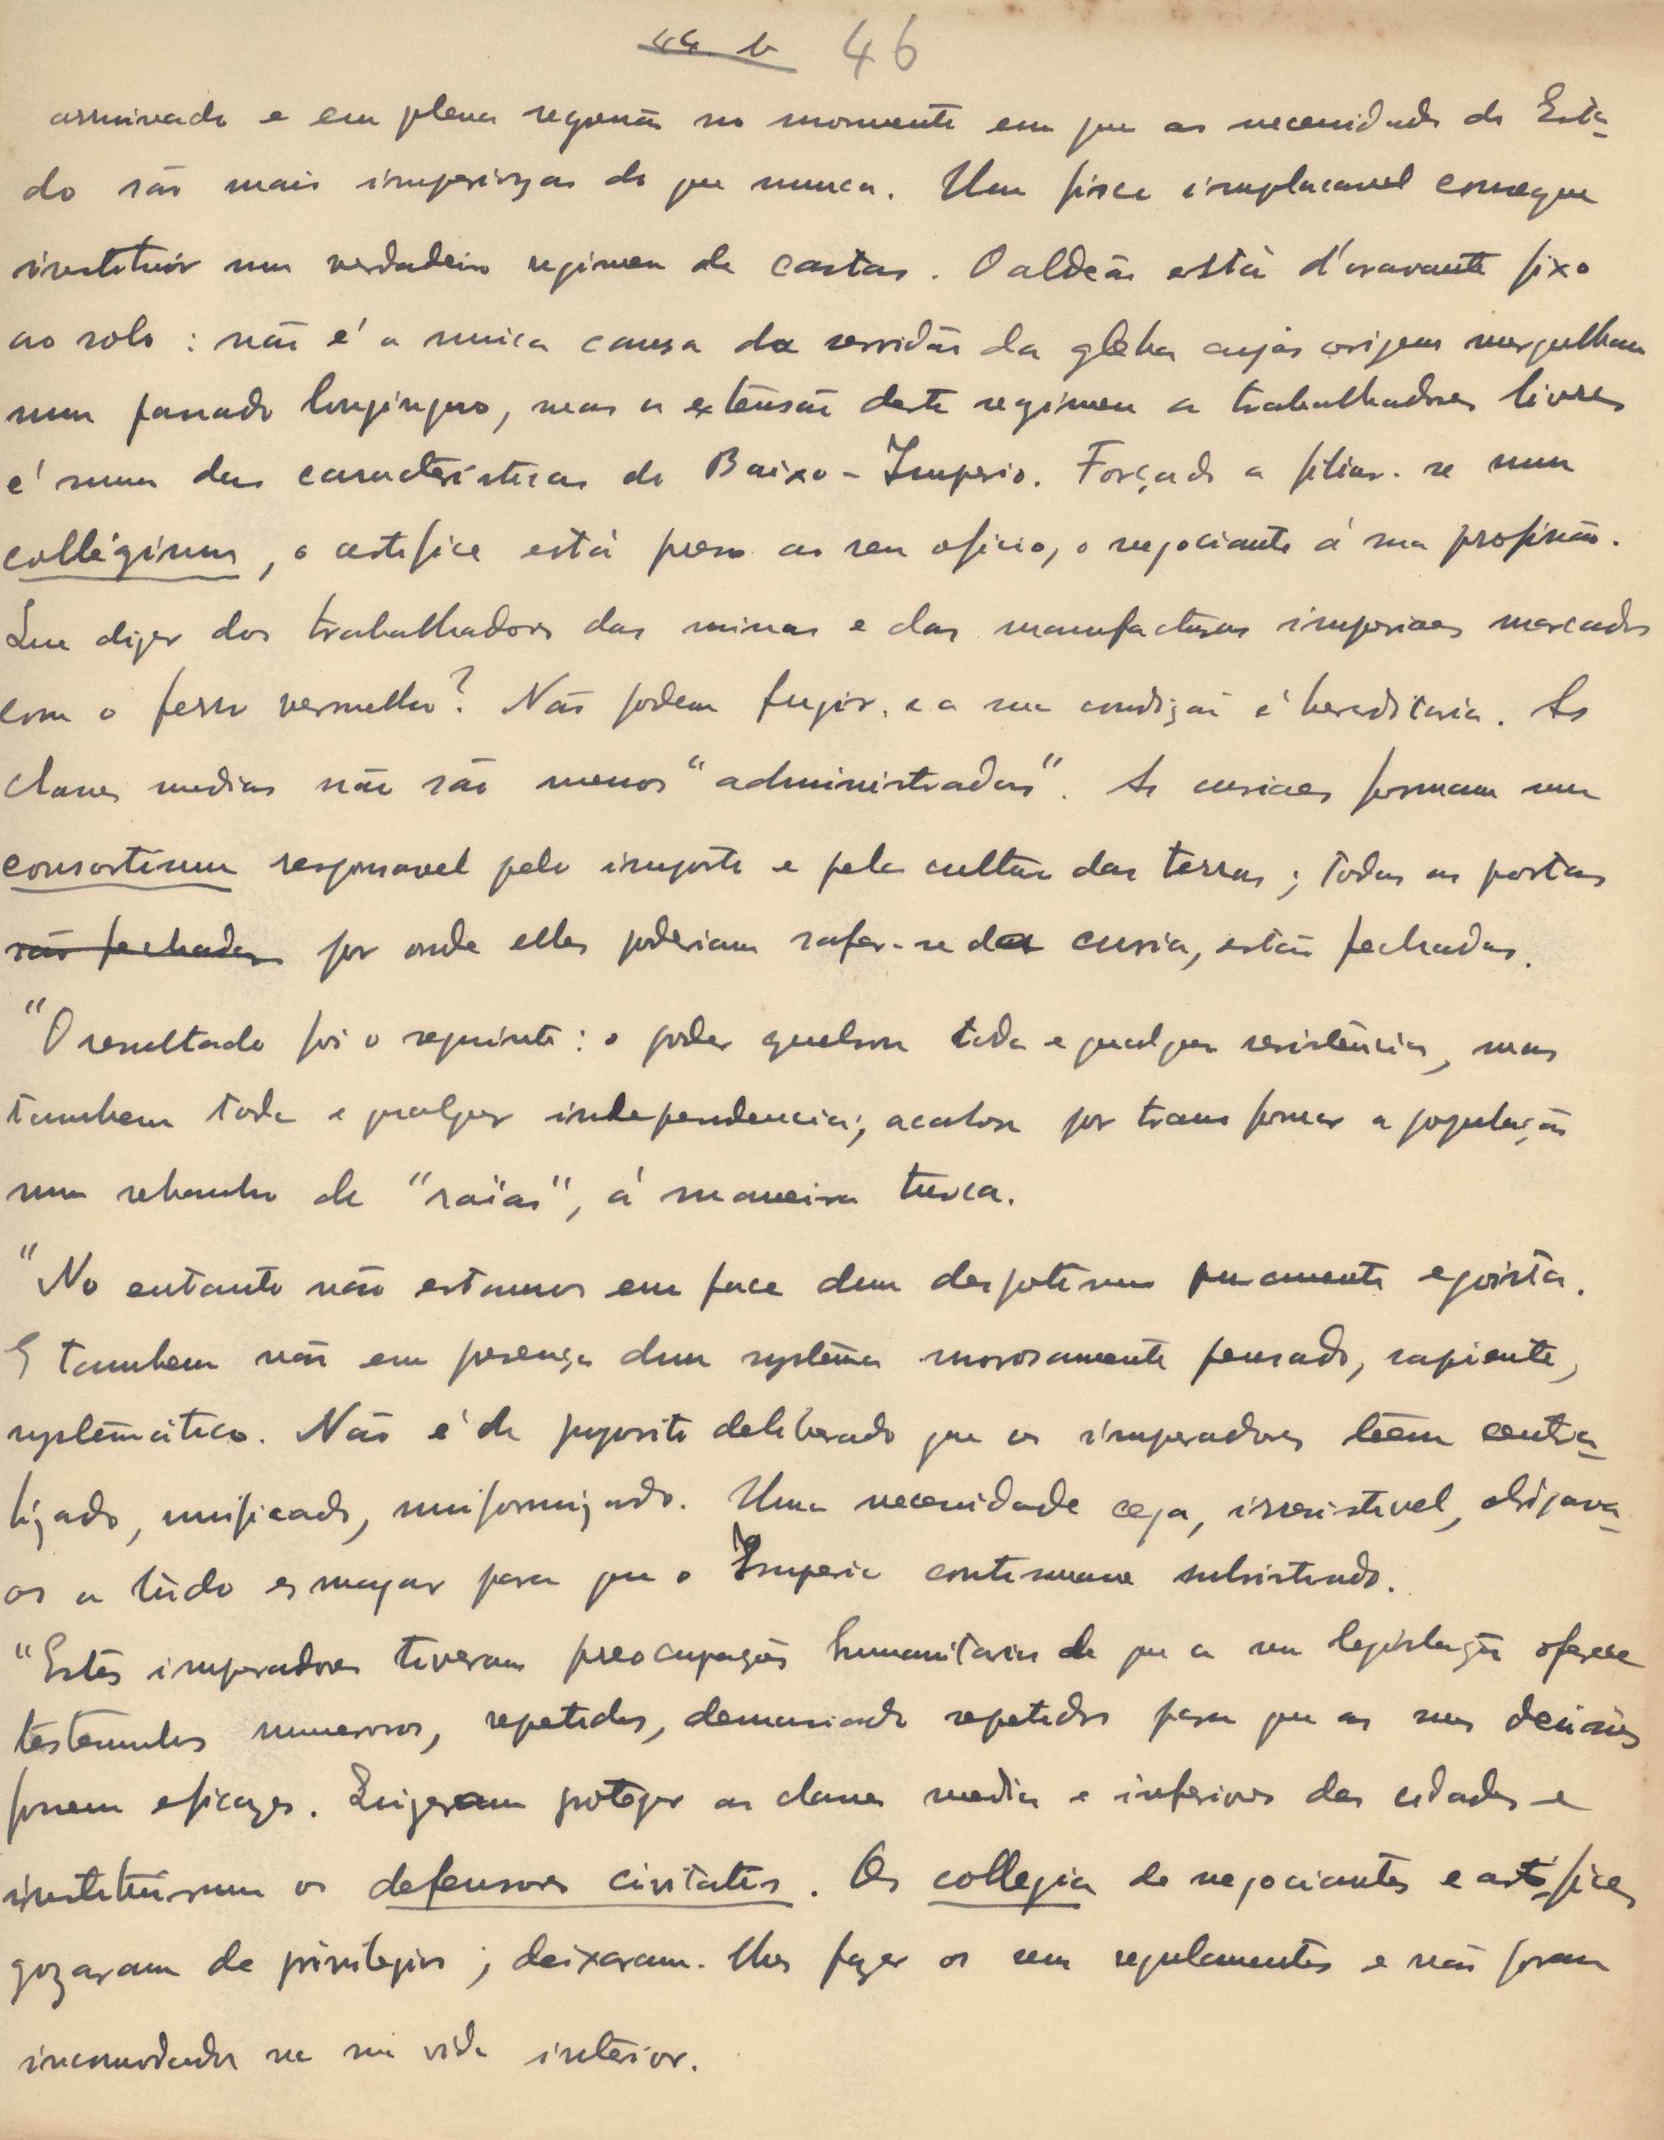 44 b 46
arruinado e em plena regressão no momento em que as necessidades do Esta-
do são mais imperiosas do que nunca. Um fisco implacavel consegue
instituir um verdadeiro regimen de castas. O aldeão está d'oravante fixo
ao solo: não é a unica causa da servidão da gleba cujas origens mergulham
num passado longinquo, mas a extensão deste regimen a trabalhadores livres
é uma das caracteristicas do Baixo-Imperio. Forçado a filiar-se num
collégium, o artifice está preso ao seu oficio, o negociante á sua profissão.
Que dizer dos trabalhadores das minas e das manufacturas imperiaes marcados
com o ferro vermelho? Não podem fugir, e a sua condição é hereditaria. As
classes medias não são menos "administradas". Os curiaes formam um
consortium responsavel pelo imposto e pela cultura das terras; todas as portas
são fechadas por onde elles poderiam safar-se da curia, estão fechadas.
"O resultado foi o seguinte: o poder quebrou toda e qualquer resistência, mas
tambem toda e qualquer independencia; acabou por transformar a população
num rebanho de "raïas", á maneira turca.
"No entanto não estamos em face dum despotismo puramente egoista.
E tambem não em presença dum systêma morosamente pensado, sapiente,
systêmático. Não é de proposito deliberado que os imperadores têem centra-
lizado, unificado, uniformizado. Uma necessidade cega, irresistivel, obrigava-
os a tudo esmagar para que o Imperio continuasse subsistindo.
"Estes imperadores tiveram preocupações humanitarias de que a sua legislação oferece
testemunhos numerosos, repetidos, demasiado repetidos para que as suas decisões
fossem eficazes. Quizeram proteger as classes medias e inferiores das cidades e
instituiram os defensores civitatis. Os collegia de negociantes e artífices
gozaram de privilegios; deixaram-lhes fazer os seus regulamentos e não foram
incomodados na sua vida interior.